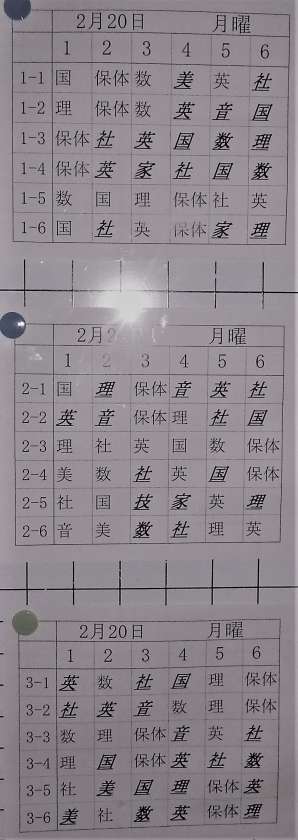 2月20日 月曜
1 2 3 4 5 6
1-1 国 保体 数 美 英 社
1-2 理 保体 数 英 音 国
1-3 保体 社 英 国 数 理
1-4 保体 英 家 社 国 数
1-5 数 国 理 保体 社 英
1-6 国 社 英 保体 家 理
2月2 月曜
1 2 3 4 5 6
2-1 国 理 保体 音 英 社
2-2 英 音 保体 理 社 国
2-3 理 社 英 国 数 保体
2-4 美 数 社 英 国 保体
2-5 社 国 技 家 英 理
2-6 音 美 数 社 理 英
2月20日 月曜
1 2 3 4 5 6
3-1 英 数 社 国 理 保体
3-2 社 英 音 数 理 保体
3-3 数 理 保体 音 英 社
3-4 理 国 保体 英 社 数
3-5 社 美 国 理 保体 英
3-6 美 社 数 英 保体 理